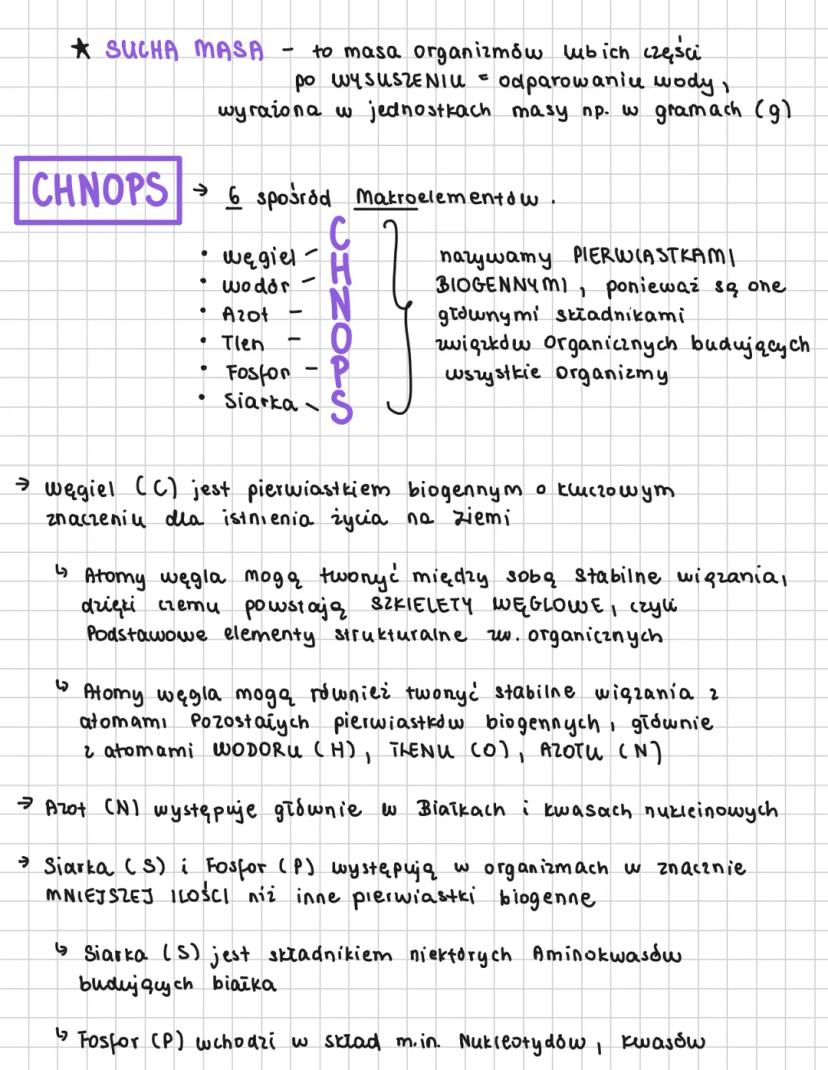 ★ SUCHA MASA – to masa organizmów lub ich części
po WYSUSZENIU = odparowaniu wody,
wyrażona w jednostkach masy np. w gramach (g)
CHNOPS → 6 spośród Makroelementów.
• węgiel – C
• wodór – H
• Azot – N
• Tlen – O
• Fosfor – P
• Siarka – S
nazywamy PIERWIASTKAMI
BIOGENNYMI, ponieważ są one
głównymi składnikami
związków organicznych budujących
wszystkie organizmy
→ węgiel (C) jest pierwiastkiem biogennym o kluczowym
znaczeniu dla istnienia życia na ziemi
↳ Atomy węgla mogą tworzyć między sobą stabilne wiązania,
dzięki czemu powstają SZKIELETY WĘGLOWE, czyli
Podstawowe elementy strukturalne zw. organicznych
↳ Atomy węgla mogą również tworzyć stabilne wiązania z
atomami Pozostałych pierwiastków biogennych, głównie
z atomami WODORU (H), TLENU (O), AZOTU (N)
→ Azot (N) występuje głównie w Białkach i kwasach nukleinowych
→ Siarka (S) i Fosfor (P) występują w organizmach w znacznie
MNIEJSZEJ ILOŚCI niż inne pierwiastki biogenne
↳ Siarka (S) jest składnikiem niektórych Aminokwasów
budujących białka
↳ Fosfor (P) wchodzi w skład m.in. Nukleotydów, kwasów